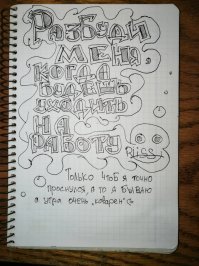 Разбуди
меня,
когда
будешь
уходить
на
работу
Только чтоб я точно
проснулся, а то я бываю
с утра очень „коварен“